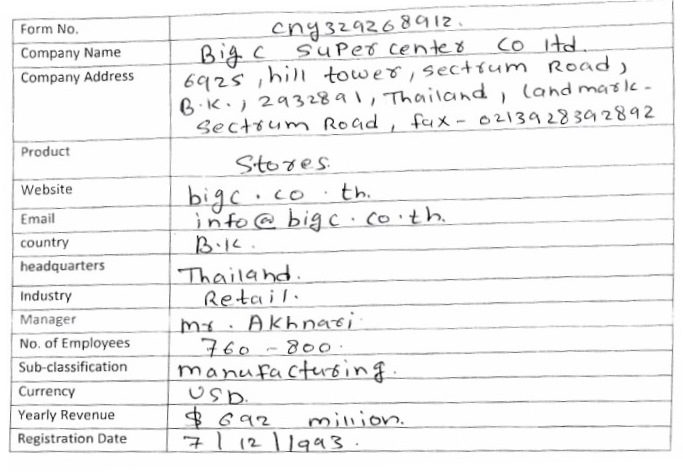 Form No. cny329268912.
Company Name Big C Super center Co ltd.
Company Address 6925, hill tower, sectrum Road,
B.K., 2932891, Thailand, landmark-
Sectrum Road, fax - 0213928392892
Product Stores.
Website bigc.co.th.
Email info@bigc.co.th.
country B.K.
headquarters Thailand.
Industry Retail.
Manager Mr. Akhnari
No. of Employees 760 - 800.
Sub-classification manufacturing.
Currency USD.
Yearly Revenue $ 692 million.
Registration Date 7/12/1993.